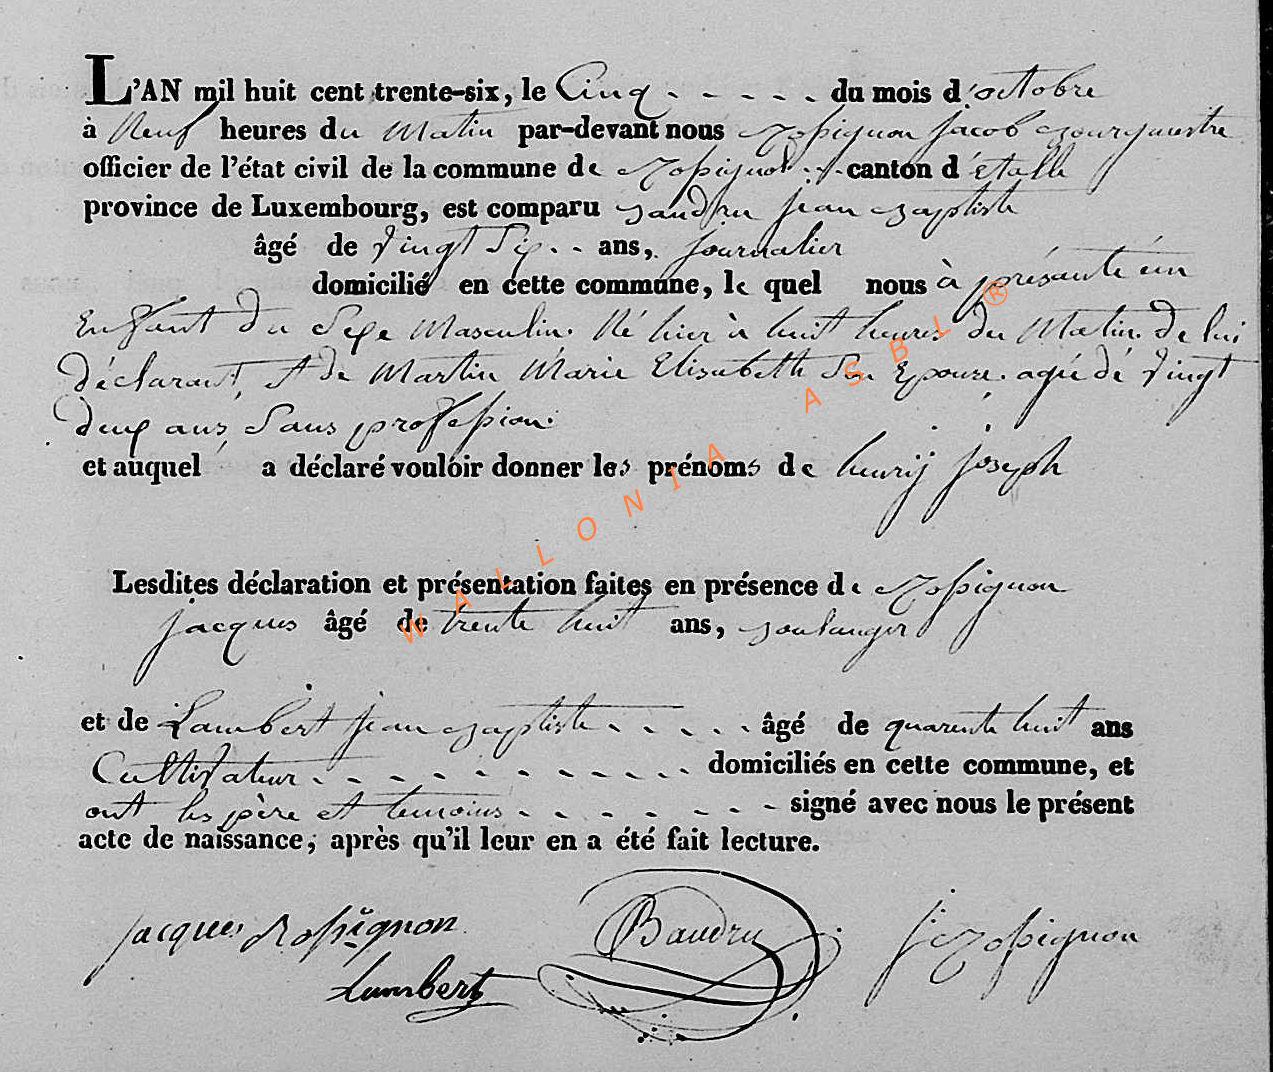 L'AN mil huit cent trente-six, le Cinq - - - - - du mois d'octobre
à Neuf heures du Matin par-devant nous Rossignon Jacob Bourgmestre
officier de l'état civil de la commune de Rossignol - - canton d'Etalle
province de Luxembourg, est comparu Baudru Jean Baptiste
âgé de vingt Six - - ans, Journalier
domicilié en cette commune, le quel nous à présanté un
Enfant du Sexe Masculin. Né hier à huit heures du Matin. De lui
déclarant, et de Martin Marie Elisabeth Son Epouse. agée dé vingt
deux ans, Sans profession.
et auquel a déclaré vouloir donner les prénoms de henrij joseph
Lesdites déclaration et présentation faites en présence de Rossignon
Jacques âgé de trente huit ans, Boulanger
et de Lambert Jean Baptiste - - - - - âgé de quarente huit ans
Cultivateur - - - - - - - - - - domiciliés en cette commune, et
ont les père et temoins - - - - - - - signé avec nous le présent
acte de naissance, après qu'il leur en a été fait lecture.
Jacques Rossignon Baudru J: Rossignon
Lambert
WALLONIA ASBL ®